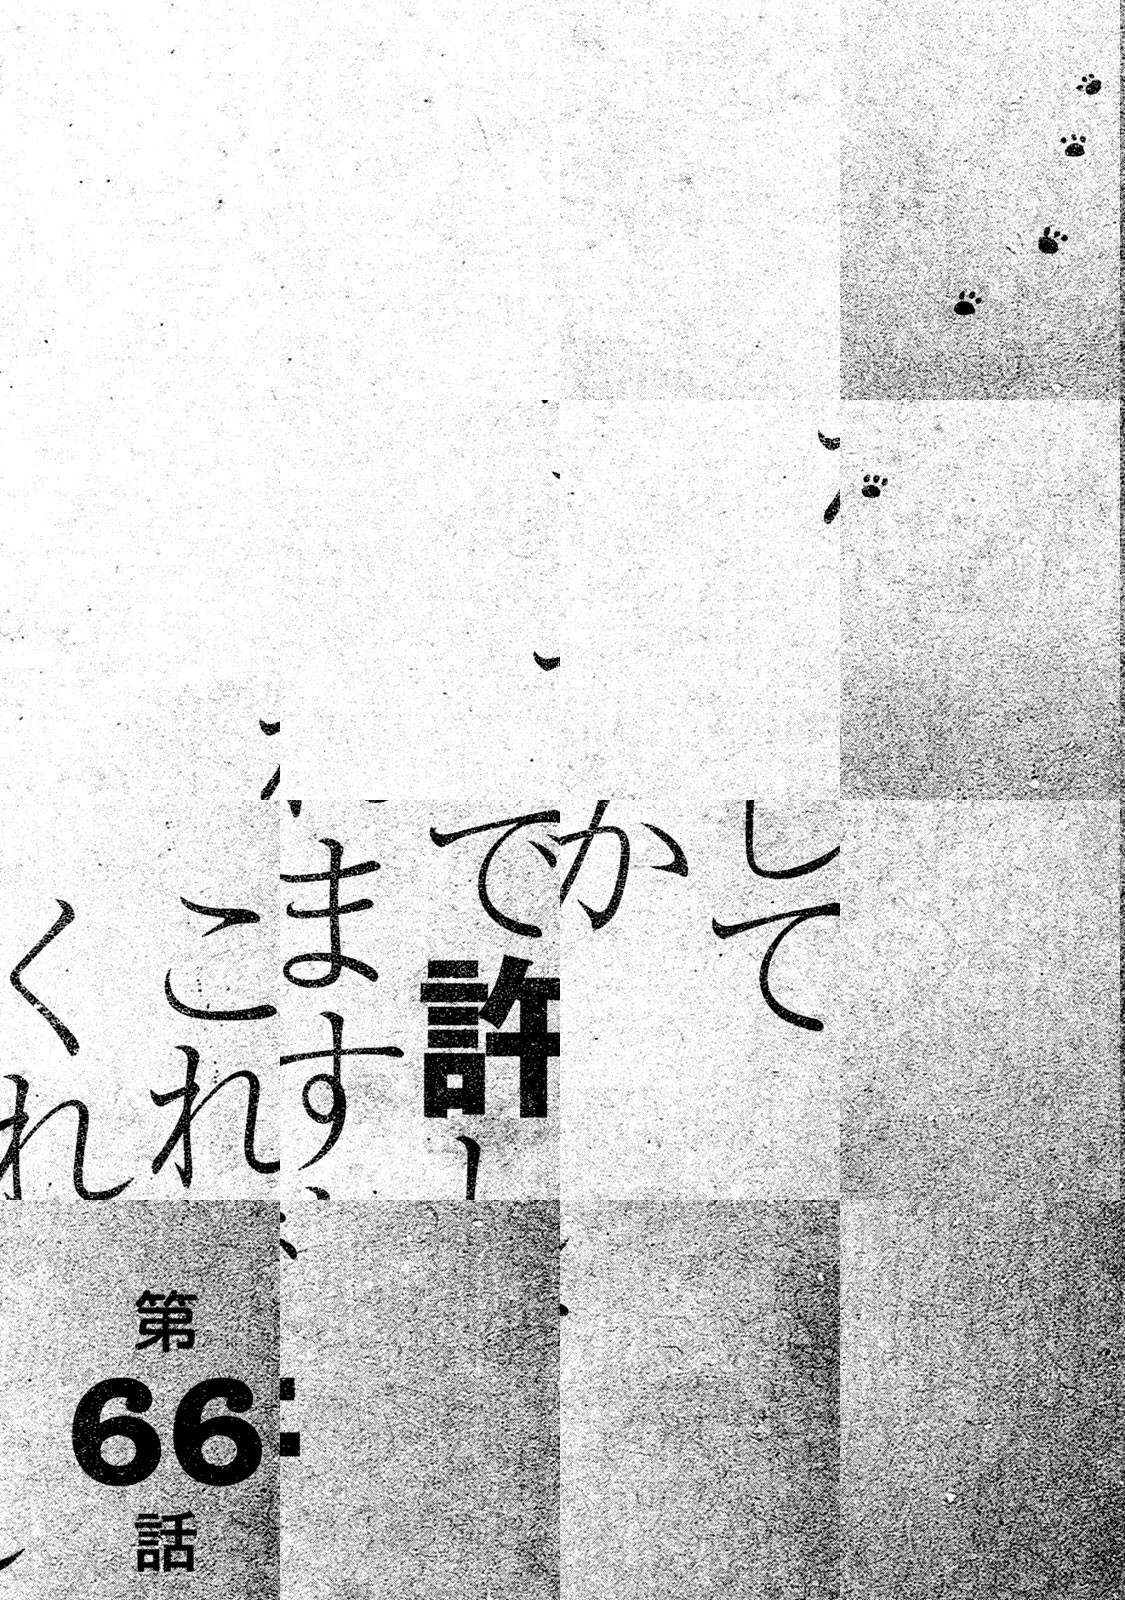 して
か
で許
ます
これ
くれ
第
66
話